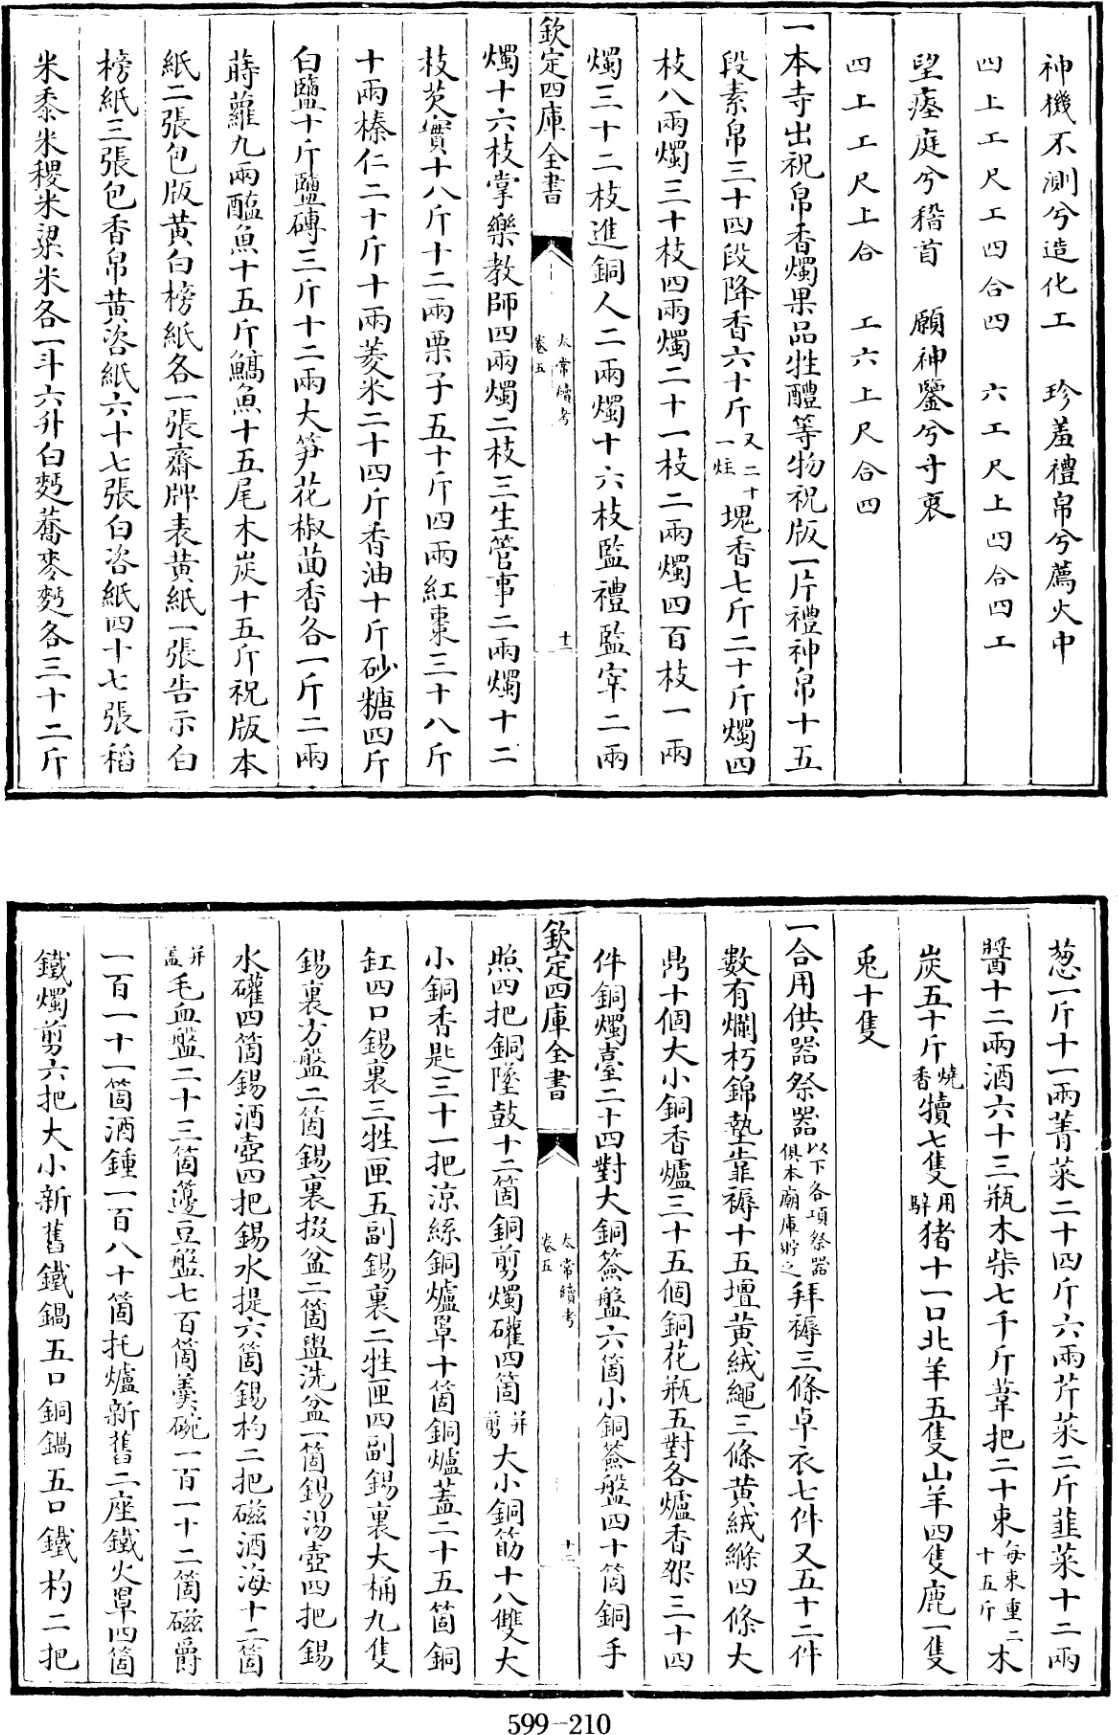 神機不測兮造化工　珍羞禮帛兮薦火中
四上工尺工四合四　六工尺上四合四工
望瘞庭兮稽首　願神鑒兮寸衷
四上工尺上合　工六上尺合四
一本寺出祝帛香燭果品牲醴等物祝版一片禮神帛十五
段素帛三十四段降香六十斤又二十一炷塊香七斤二十斤燭四
枝八兩燭三十枝四兩燭二十一枝二兩燭四百枝一兩
燭三十二枝進銅人二兩燭十六枝監禮監宰二兩
欽定四庫全書　太常續考卷五　十一
燭十六枝掌樂教師四兩燭二枝三生管事二兩燭十二
枝芡實十八斤十二兩栗子五十斤四兩紅棗三十八斤
十兩榛仁二十斤十兩菱米二十四斤香油十斤砂糖四斤
白鹽十斤鹽磚三斤十二兩大笋花椒茴香各一斤二兩
蒔蘿九兩醢魚十五斤鱐魚十五尾木炭十五斤祝版本
紙二張包版黃白榜紙各一張齋牌表黃紙一張告示白
榜紙三張包香帛黃咨紙六十七張白咨紙四十七張稻
米黍米稷米粱米各一斗六升白麪蕎麥麪各三十二斤
葱一斤十一兩菁菜二十四斤六兩芹菜二斤韮菜十二兩
醬十二兩酒六十三瓶木柴七千斤葦把二十束每束重二十五斤木
炭五十斤燒香犢七隻用騂猪十一口北羊五隻山羊四隻鹿一隻
兎十隻
一合用供器祭器以下各項祭器俱本廟庫貯之拜褥三條卓衣七件又五十二件
數有爛朽錦墊靠褥十五壇黃絨繩三條黃絨縧四條大
鼎十個大小銅香爐三十五個銅花瓶五對各爐香架三十四
件銅燭臺二十四對大銅簽盤六箇小銅簽盤四十箇銅手
欽定四庫全書　太常續考卷五　十二
照四把銅墜鼓十二箇銅剪燭礶四箇并剪大小銅筯十八雙大
小銅香匙三十一把涼絲銅爐罩十箇銅爐蓋二十五箇銅
缸四口錫裏三牲匣五副錫裏二牲匣四副錫裏大桶九隻
錫裏方盤二箇錫裏掇盆二箇盥洗盆一箇錫湯壺四把錫
水礶四箇錫酒壺四把錫水提六箇錫杓二把磁酒海十二箇
并盖毛血盤二十三箇籩豆盤七百箇羮碗一百一十二箇磁爵
一百一十一箇酒鍾一百八十箇托爐新舊二座鐵火罩四箇
鐵燭剪六把大小新舊鐵鍋五口銅鍋五口鐵杓二把
599-210